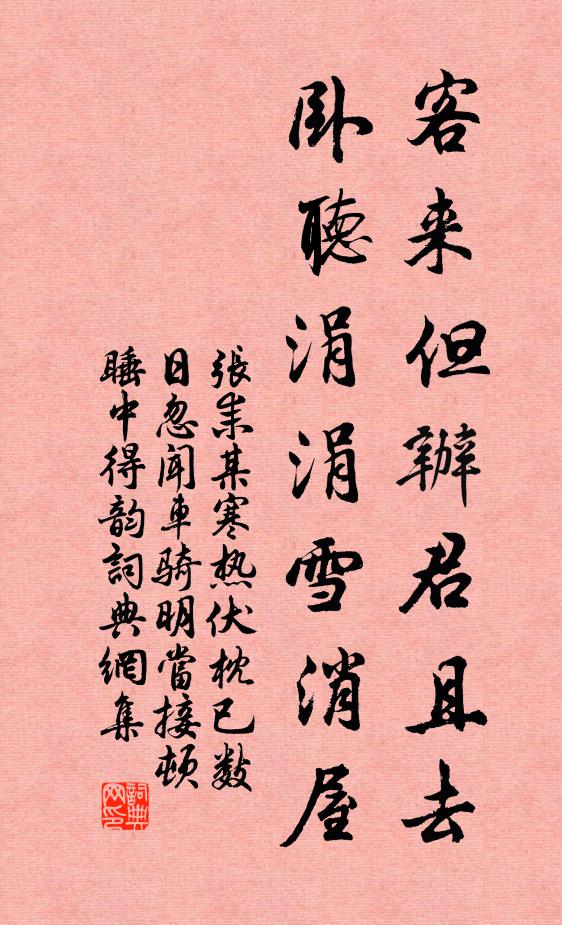 客来但辦君且去
卧聽涓涓雪消屋
張耒某寒热伏枕已数
日忽闻車骑明當接頓
睡中得韵詞典網集
詞典网印